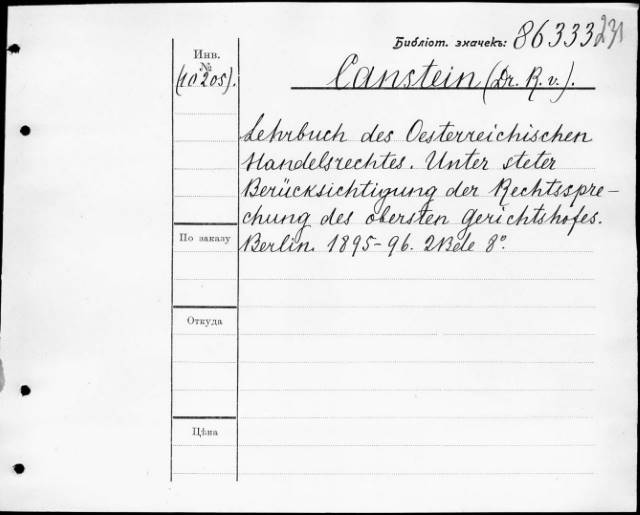 Библіот. значекъ: 86333
231
Инв.
№
(10205).
Canstein (Dr. R. v.).
Lehrbuch des Oesterreichischen
Handelsrechtes. Unter steter
Berücksichtigung der Rechtsspre-
chung des obersten Gerichtshofes.
Berlin. 1895-96. 2 Bde 8°.
По заказу
Откуда
Цѣна